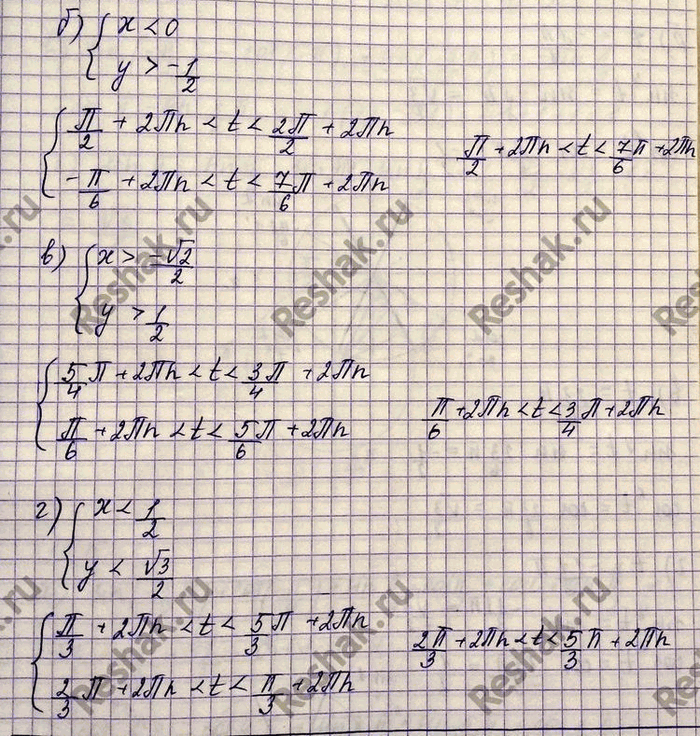 б) { x < 0
y > -1/2
{ π/2 + 2πn < t < 2π/2 + 2πn
-π/6 + 2πn < t < 7/6 π + 2πn
π/2 + 2πn < t < 7/6 π + 2πn
в) { x > -√2/2
y > 1/2
{ 5/4 π + 2πn < t < 3/4 π + 2πn
π/6 + 2πn < t < 5/6 π + 2πn
π/6 + 2πn < t < 3/4 π + 2πn
г) { x < 1/2
y < √3/2
{ π/3 + 2πn < t < 5/3 π + 2πn
2/3 π + 2πn < t < π/3 + 2πn
2π/3 + 2πn < t < 5/3 π + 2πn
Reshak.ru
Reshak.ru
Reshak.ru
Reshak.ru
Reshak.ru
Reshak.ru